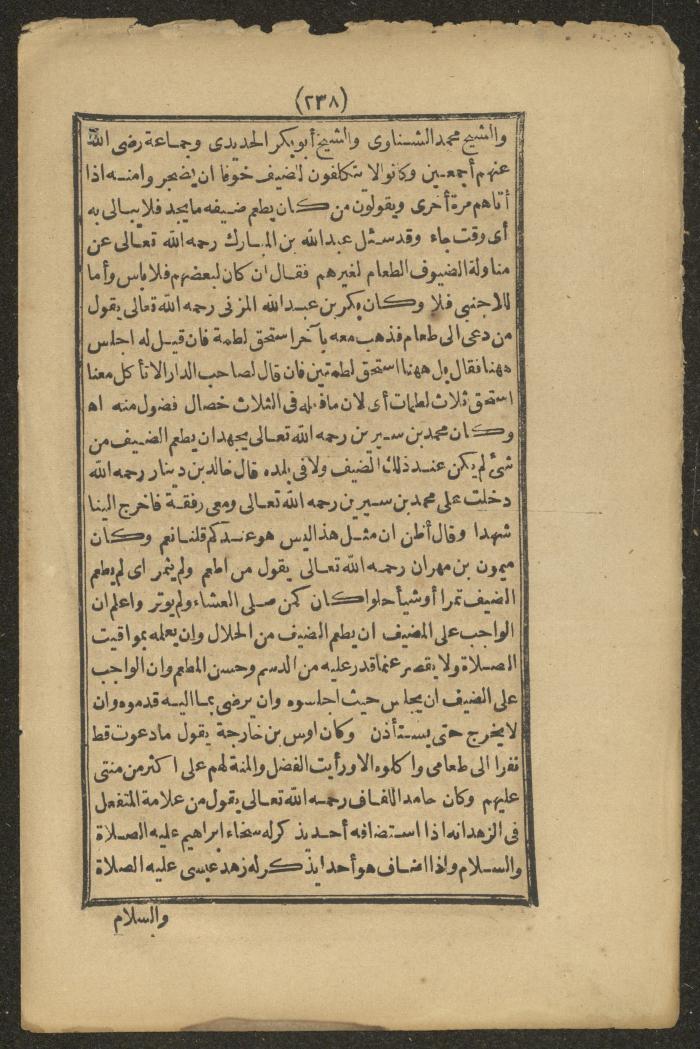 (٢٣٨)
والشيخ محمد الشناوى والشيخ أبو بكر الحديدى وجماعة رضى الله
عنهم أجمعين وكانوا لا يتكلفون لضيف خوفا ان يضجر وامنه اذا
أتاهم مرة أخرى ويقولون من كان يطعم ضيفه ما يجد فلا يبالى به
أى وقت جاء وقد سئل عبد الله بن المبارك رحمه الله تعالى عن
مناولة الضيوف الطعام لغيرهم فقال ان كان لبعضهم فلا باس وأما
للاجنبى فلا وكان بكر بن عبد الله المزنى رحمه الله تعالى يقول
من دعى الى طعام فذهب معه بآخر استحق لطمة فان قيل له اجلس
ههنا فقال بل ههنا استحق لطمتين فان قال لصاحب الدار الا تأكل معنا
استحق ثلاث لطمات أى لان ما فعله فى الثلاث خصال فضول منه اه
وكان محمد بن سيرين رحمه الله تعالى يجهد ان يطعم الضيف من
شئ لم يكن عند ذلك الضيف ولا فى بلده قال خالد بن دينار رحمه الله
دخلت على محمد بن سيرين رحمه الله تعالى ومعى رفقة فاخرج الينا
شهدا وقال أظن ان مثل هذا ليس هو عندكم قلنا نعم وكان
ميمون بن مهران رحمه الله تعالى يقول من اطعم ولم يتمر اى لم يطعم
الضيف تمرا أو شيأ حلوا كان كمن صلى العشاء ولم يوتر واعلم ان
الواجب على المضيف ان يطعم الضيف من الحلال وان يعلمه بمواقيت
الصلاة ولا يقصر عما قدر عليه من الدسم وحسن المطعم وان الواجب
على الضيف ان يجلس حيث اجلسوه وان يرضى بما اليه قدموه وان
لا يخرج حتى يستأذن وكان اوس بن خارجة يقول ما دعوت قط
نفرا الى طعامى واكلوه الا ورأيت الفضل والمنة لهم على اكثر من منتى
عليهم وكان حامد اللفاف رحمه الله تعالى يقول من علامة المتفعل
فى الزهد انه اذا استضافه أحد يذكر له سخاء ابراهيم عليه الصلاة
والسلام واذا اضاف هو أحدا يذكر له زهد عيسى عليه الصلاة
والسلام